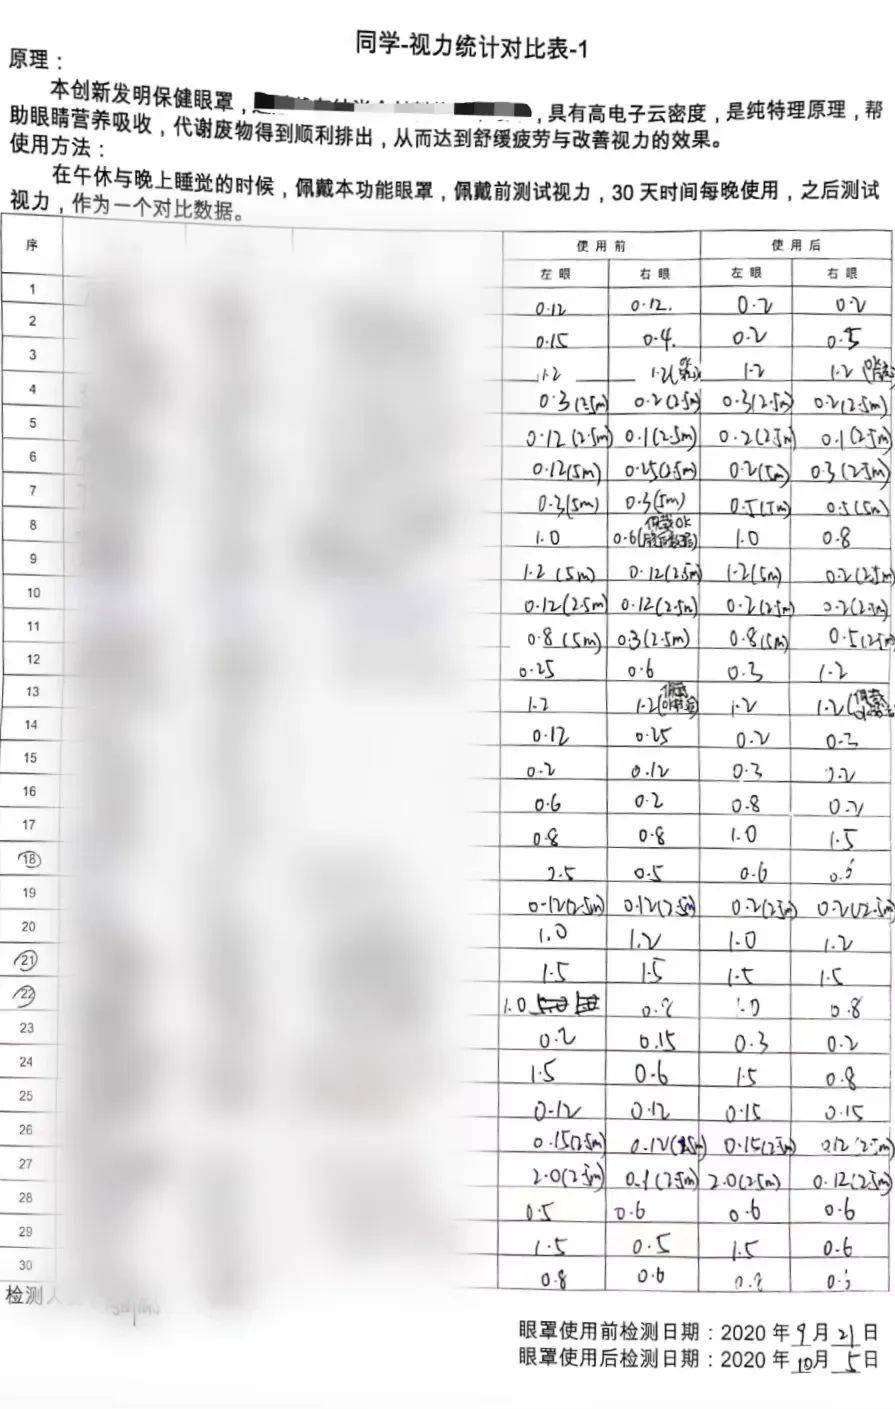 同学-视力统计对比表-1
原理：
本创新发明保健眼罩，，具有高电子云密度，是纯特理原理，帮
助眼睛营养吸收，代谢废物得到顺利排出，从而达到舒缓疲劳与改善视力的效果。
使用方法：
在午休与晚上睡觉的时候，佩戴本功能眼罩，佩戴前测试视力，30天时间每晚使用，之后测试
视力，作为一个对比数据。
序 使用前 使用后
左眼 右眼 左眼 右眼
1 0.12 0.12. 0.2 0.2
2 0.15 0.4. 0.2 0.5
3 1.2 1.2( 1.2 1.2
4 0.3(2.5m) 0.2(2.5m) 0.3(2.5m) 0.2(2.5m)
5 0.12(2.5m) 0.1(2.5m) 0.2(2.5m) 0.1(2.5m)
6 0.12(5m) 0.25(2.5m) 0.2(5m) 0.3(2.5m)
7 0.3(5m) 0.3(5m) 0.5(5m) 0.5(5m)
8 1.0 0.6(佩戴OK 1.0 0.8
9 1.2(5m) 0.12(2.5m) 1.2(5m) 0.2(2.5m)
10 0.12(2.5m) 0.12(2.5m) 0.2(2.5m) 0.2(2.5m)
11 0.8(5m) 0.3(2.5m) 0.8(5m) 0.5(2.5m)
12 0.25 0.6 0.3 1.2
13 1.2 1.2(佩戴 1.2 1.2(佩戴
14 0.12 0.25 0.2 0.3
15 0.2 0.12 0.3 0.2
16 0.6 0.2 0.8 0.2
17 0.8 0.8 1.0 1.5
18 0.5 0.6
19 0.12(2.5m) 0.12(2.5m) 0.2(2.5m) 0.2(2.5m)
20 1.0 1.2 1.0 1.2
21 1.5 1.5 1.5 1.5
22 1.0 1.0 0.8
23 0.2 0.15 0.3 0.2
24 1.5 0.6 1.5 0.8
25 0.12 0.12 0.15 0.15
26 0.15(2.5m) 0.12(2.5m) 0.15(2.5m) 0.12(2.5m)
27 2.0(2.5m) 0.1(2.5m) 2.0(2.5m) 0.12(2.5m)
28 0.5 0.6 0.6 0.6
29 1.5 0.5 1.5 0.6
30 0.8 0.6
检测人
眼罩使用前检测日期：2020年9月21日
眼罩使用后检测日期：2020年10月5日